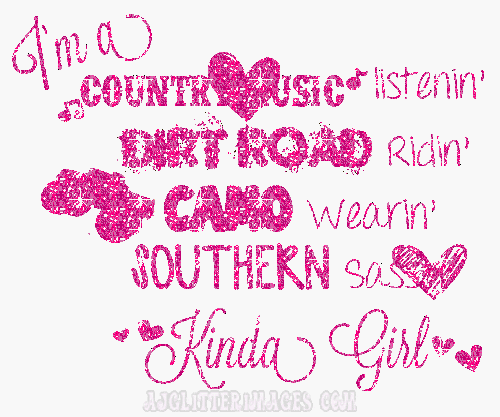 I'm a
COUNTRY MUSIC listenin'
DIRT ROAD Ridin'
CAMO Wearin'
SOUTHERN sass
Kinda Girl
AJGLITTERIMAGES.COM